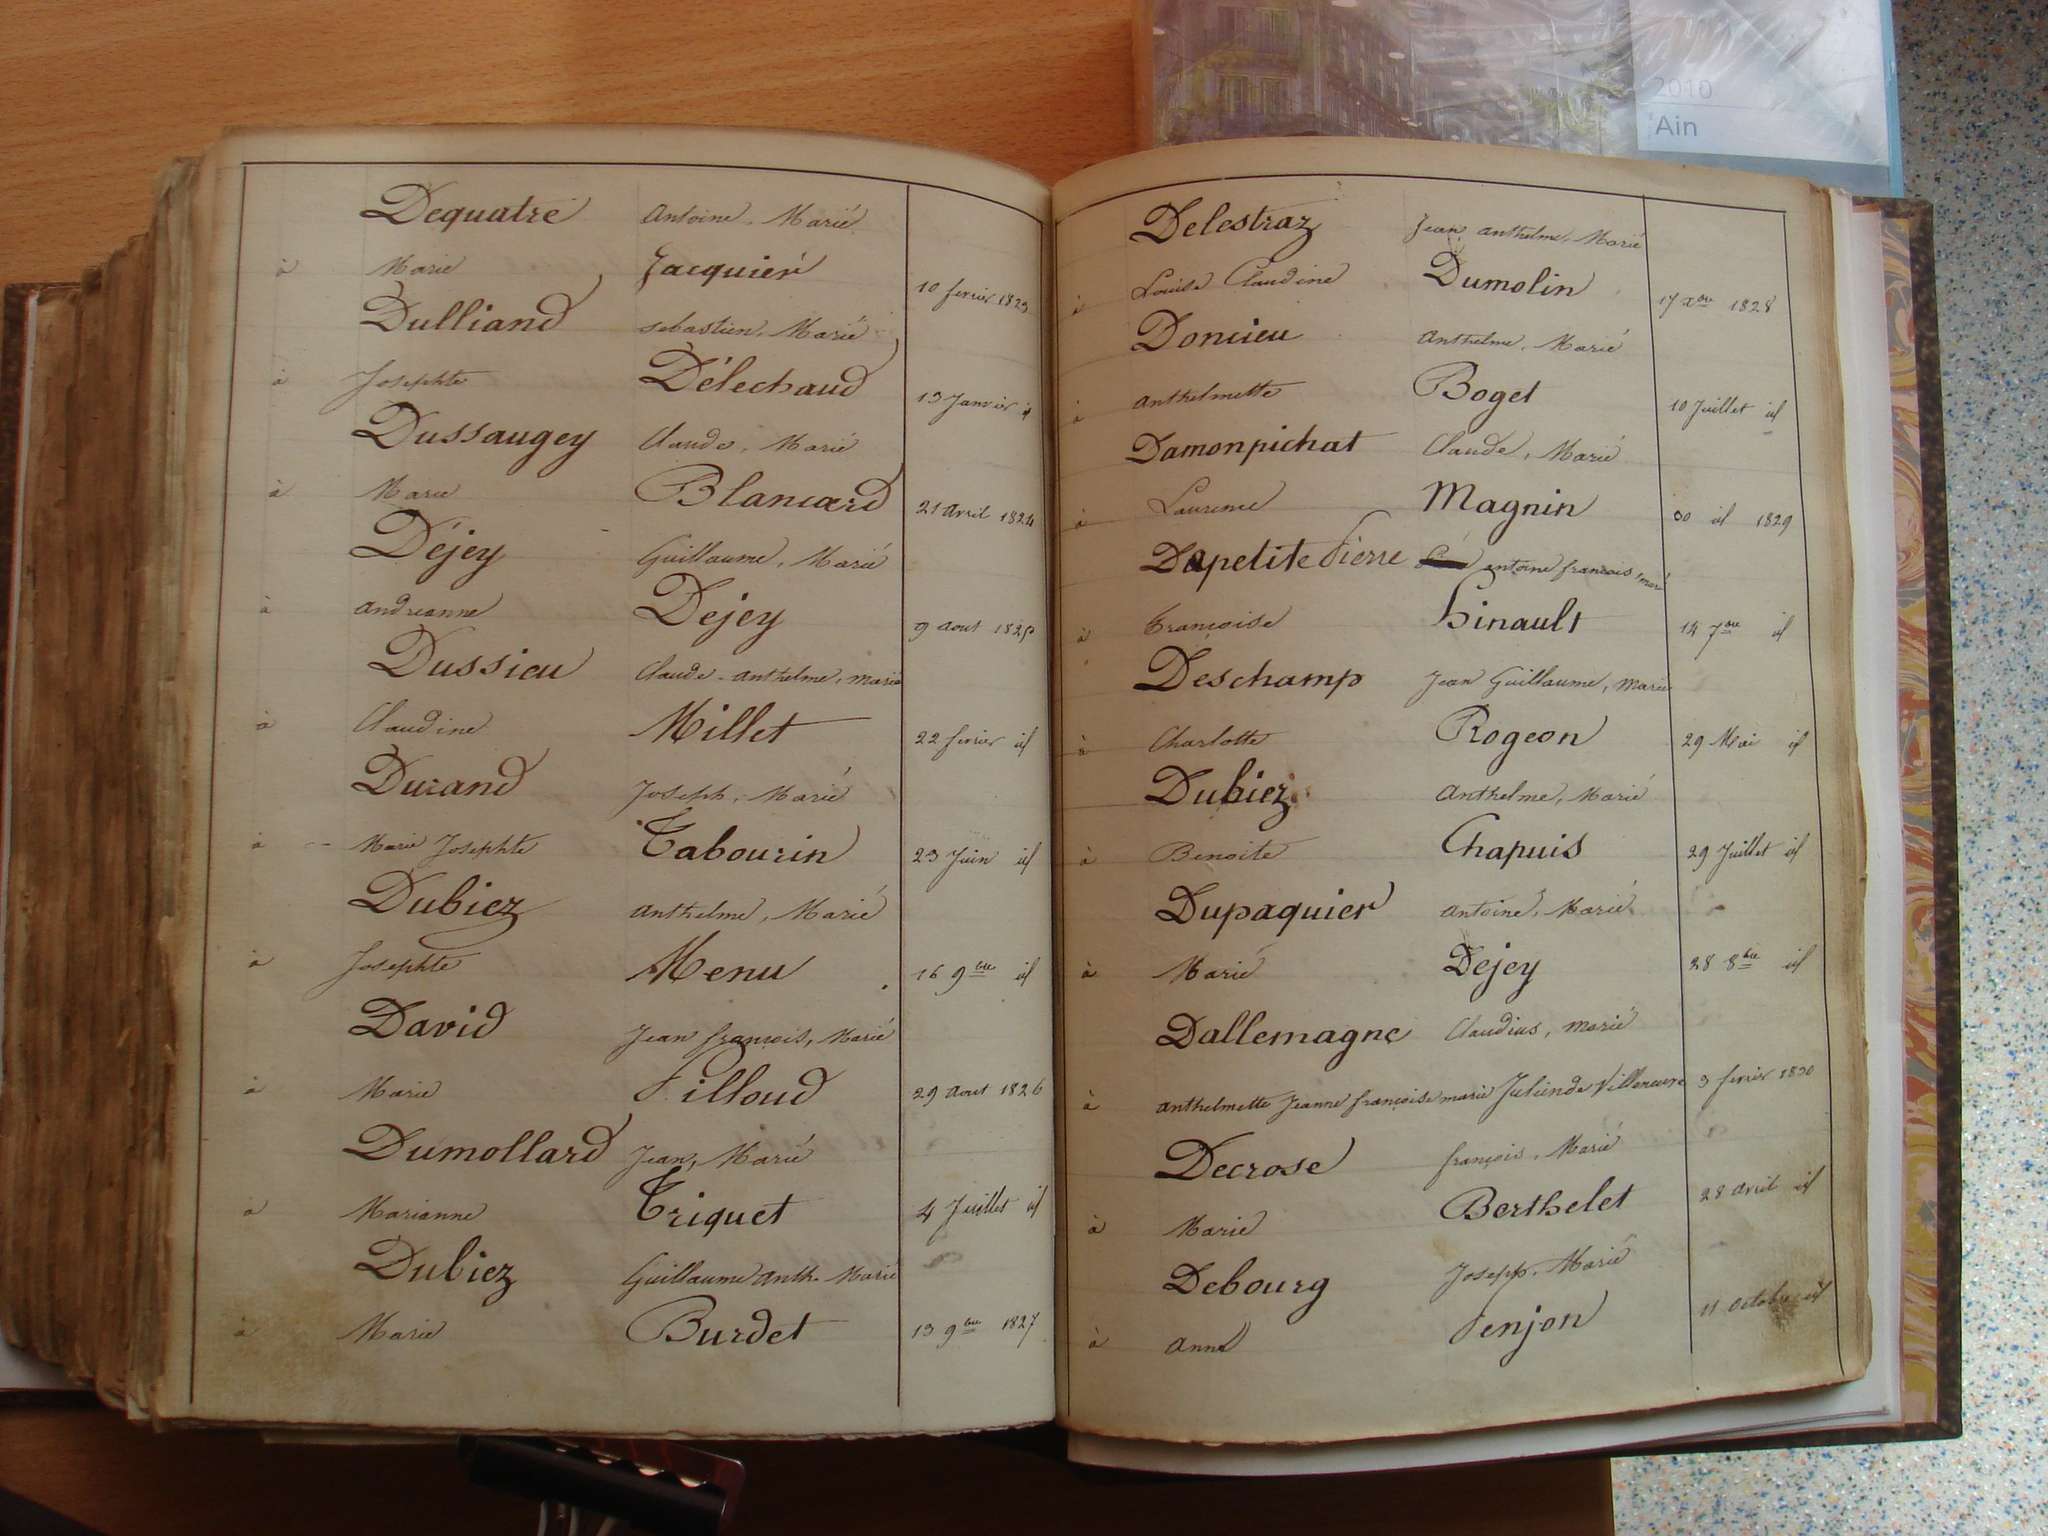 2010
Ain
Dequatre Antoine, Marié
à Marie Jacquier 10 fevrier 1823
Dulliand sebastien, Marié
à Josephte Délechaud 13 Janvier id
Dussaugey Claude, Marié
à Marie Blancard 21 avril 1824
Déjey Guillaume, Marié
à andréanne Dejey 9 aout
Dussieu Claude-anthelme, marié
à Claudine Millet 22 fevrier id
Durand Joseph, Marié
à Marie Josephte Tabourin 23 Juin id
Dubiez anthelme, Marié
à Josephte Menu 16 9bre id
David Jean françois, Marié
à Marie Pilloud 29 aout 1826
Dumollard Jean, Marié
à Marianne Triquet 4 Juillet id
Dubiez Guillaume anth. Marié
à Marie Burdet 13 9bre 1827
Delestraz Jean anthelme, Marié
à Louise Claudine Dumolin 17 Xbre 1828
Doncieu anthelme, Marié
à anthelmette Boget 10 Juillet id
Damonpichat Claude, Marié
à Laurence Magnin 30 id 1829
Dapetite Pierre antoine françois, marié
à françoise hinault 14 7bre id
Deschamp Jean Guillaume, marié
à Charlotte Rogeon 29 Mai id
Dubiez anthelme, Marié
à Benoite Chapuis 29 Juillet id
Dupaquier antoine, Marié
à Marie Dejey 28 8bre id
Dallemagne Claudius, marié
à anthelmette Jeanne françoise marie Juliende Villeneuve 3 fevrier 1830
Decrose françois, Marié
à Marie Berthelet 28 avril id
Debourg Joseph, Marié
à anne Penjon 11 octobre id